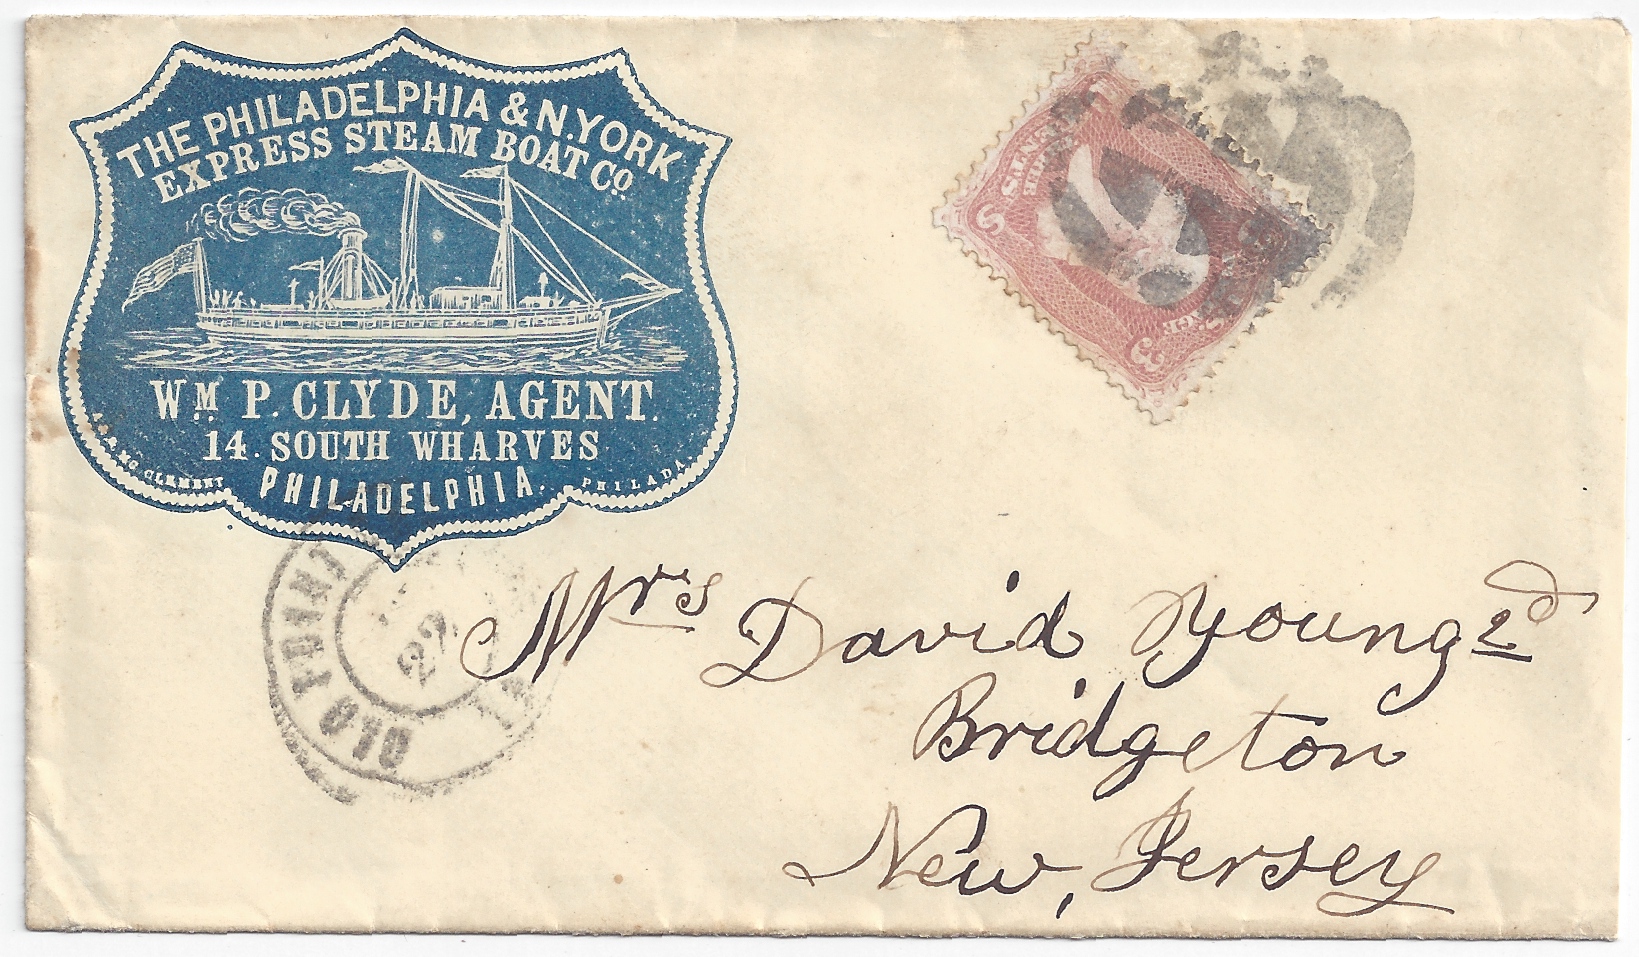 THE PHILADELPHIA & N. YORK
EXPRESS STEAM BOAT Co.
Wm P. CLYDE, AGENT.
14. SOUTH WHARVES
PHILADELPHIA.
CLEMENT
PHILADA.
3
CENTS
3
OLD POINT
22
Mrs David Young 2d
Bridgeton
New, Jersey